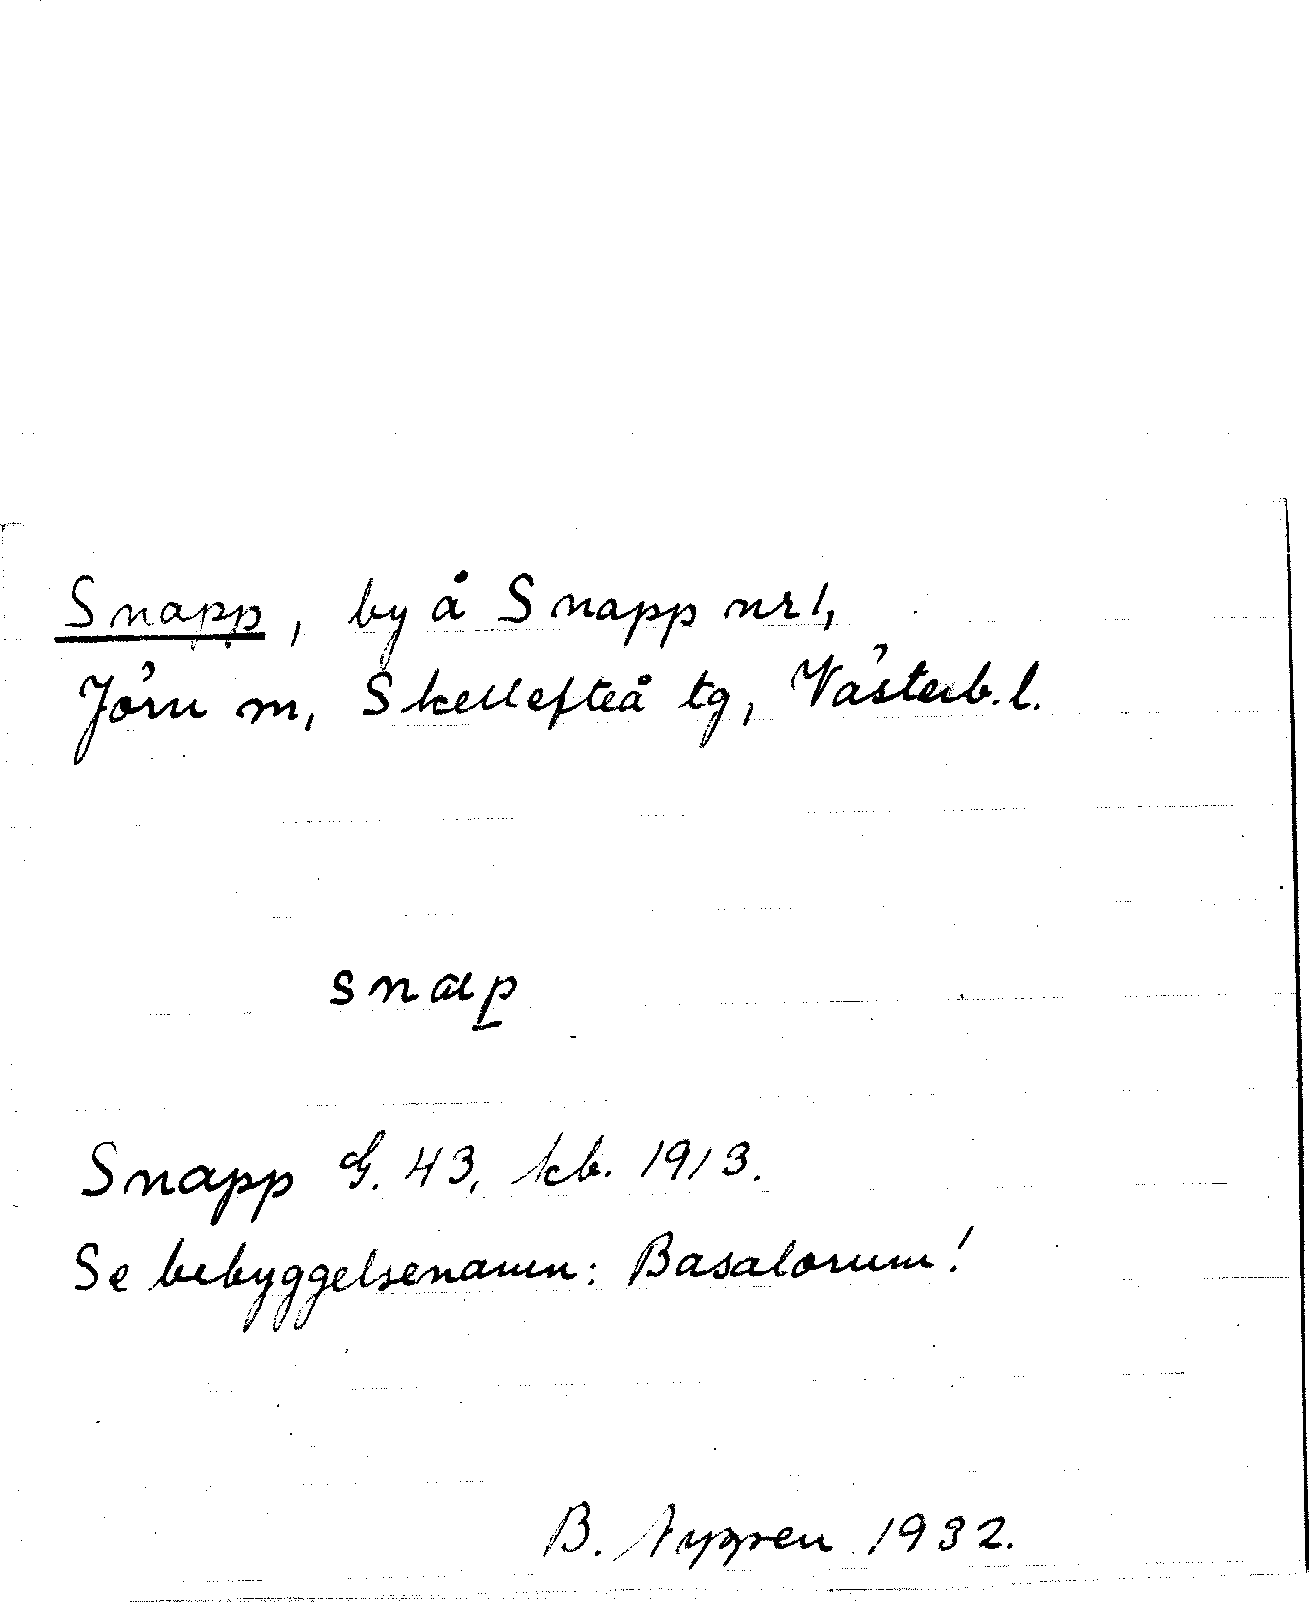 Snapp, by å Snapp nr 1,
Jörn sn, Skellefteå tg, Västerb. l.
snap
Snapp G. 43, kb. 1913.
Se bebyggelsenamn: Basalorum!
B. 1932.